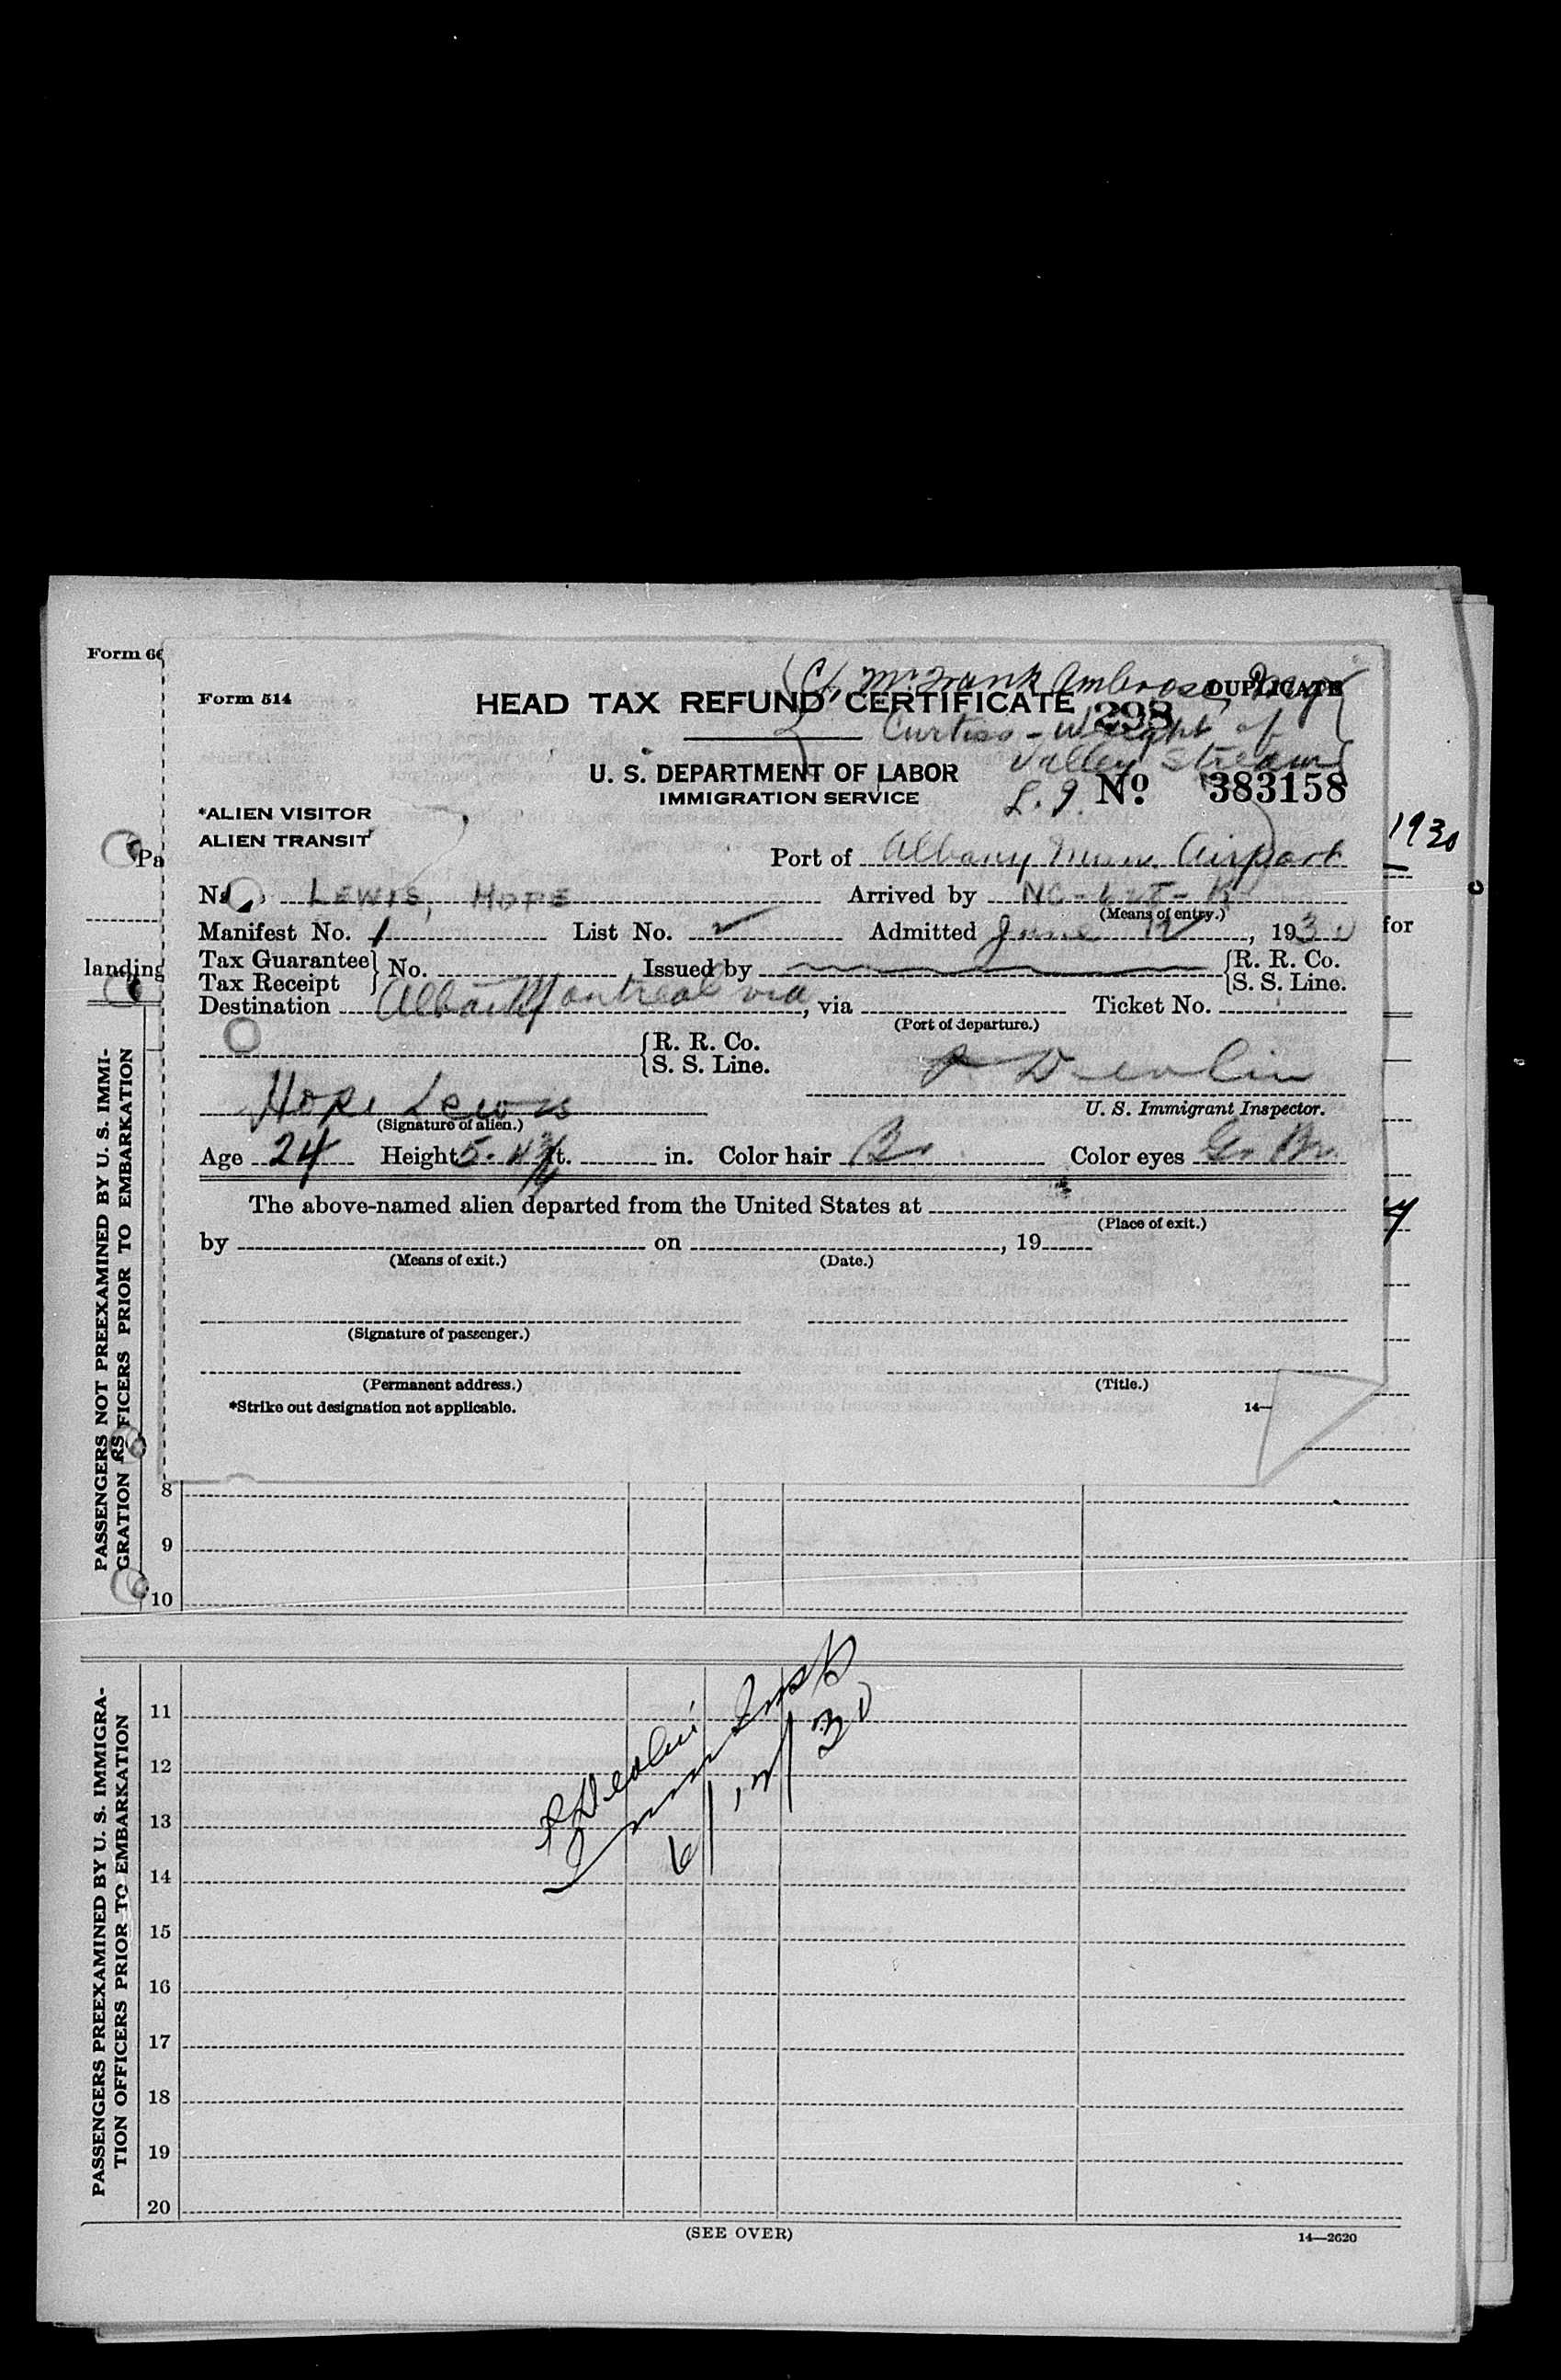 Form 66
(C/o Mr Frank Ambrose, Mgr
Form 514
HEAD TAX REFUND CERTIFICATE
DUPLICATE
298
Curtiss-Wright of
Valley Stream
L. I.
U. S. DEPARTMENT OF LABOR
IMMIGRATION SERVICE
No. 383158
*ALIEN VISITOR
ALIEN TRANSIT
1930
Pa
Port of Albany Mun. Airport
LEWIS, HOPE Arrived by NC-
(Means of entry.)
Manifest No. 1 List No. Admitted June 12, 1930
for
landing
Tax Guarantee } No. Issued by { R. R. Co.
Tax Receipt { S. S. Line.
Destination Montreal via Albany, via Ticket No.
(Port of departure.)
{ R. R. Co.
{ S. S. Line.
Devlin
Hope Lewis
(Signature of alien.)
U. S. Immigrant Inspector.
Age 24 Height 5. 4 3/4 ft. in. Color hair Br Color eyes Br.
The above-named alien departed from the United States at
(Place of exit.)
by on , 19
(Means of exit.) (Date.)
(Signature of passenger.)
(Permanent address.) (Title.)
*Strike out designation not applicable.
14—
PASSENGERS NOT PREEXAMINED BY U. S. IMMI-
GRATION OFFICERS PRIOR TO EMBARKATION
8
9
10
PASSENGERS PREEXAMINED BY U. S. IMMIGRA-
TION OFFICERS PRIOR TO EMBARKATION
11
12
13
14
15
16
17
18
19
20
Devlin
Imm Inspt
6/12/30
(SEE OVER)
14—2620